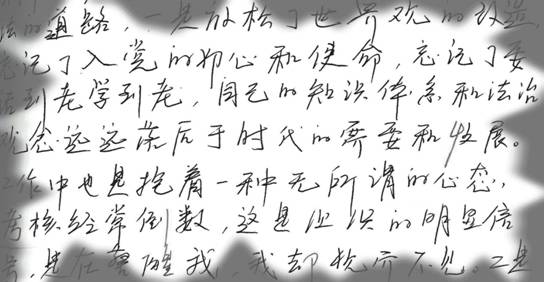 法的道路,一是放松了世界观的改造,
忘记了入党的初心和使命,忘记了要
活到老学到老,自己的知识体系和法治
观念远远落后于时代的需要和发展。
工作中也是抱着一种无所谓的心态,
考核经常倒数,这是组织的明显信
号,是在警醒我,我却视而不见。二是